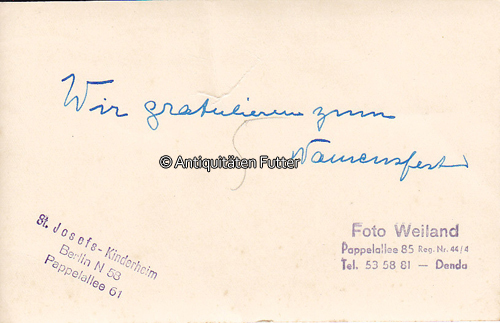 Wir gratulieren zum
Namensfest
© Antiquitäten Futter
St. Josefs-Kinderheim
Berlin N 58
Pappelallee 61
Foto Weiland
Pappelallee 85 Reg. Nr. 44/4
Tel. 53 58 81 — Denda